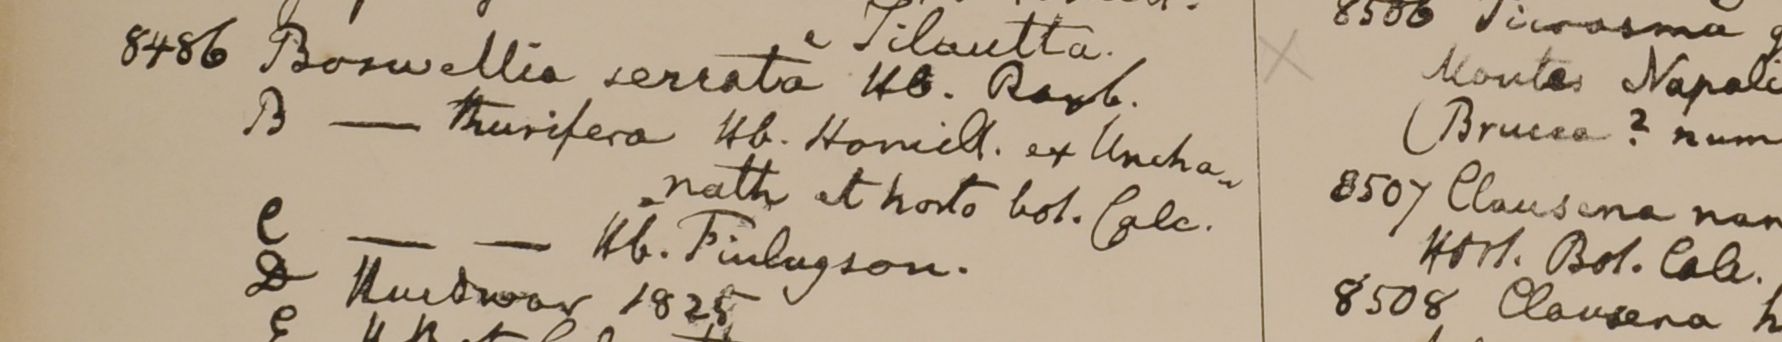 e Silautta.
8486 Boswellia serrata Hb. Roxb.
B — thurifera Hb. Hamilt. ex Uncha-
nath et horto bot. Calc.
C — — Hb. Finlayson.
D Hurdwar 1825
E
8506 Picrasma
Montes Napali
(Brucea? num
8507 Clausena nan
Hort. Bot. Calc.
8508 Clausena h